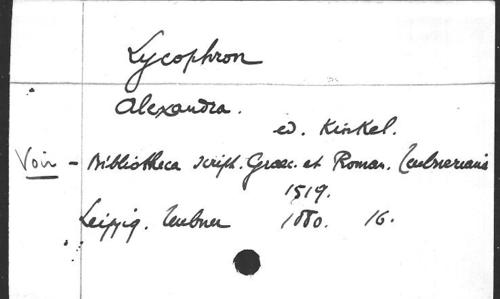 Lycophron
Alexandra.
ed. Kinkel.
Voir - Bibliotheca script. Graec. et Roman. Teubneriana
1519.
Leipzig. Teubner 1880. 16.